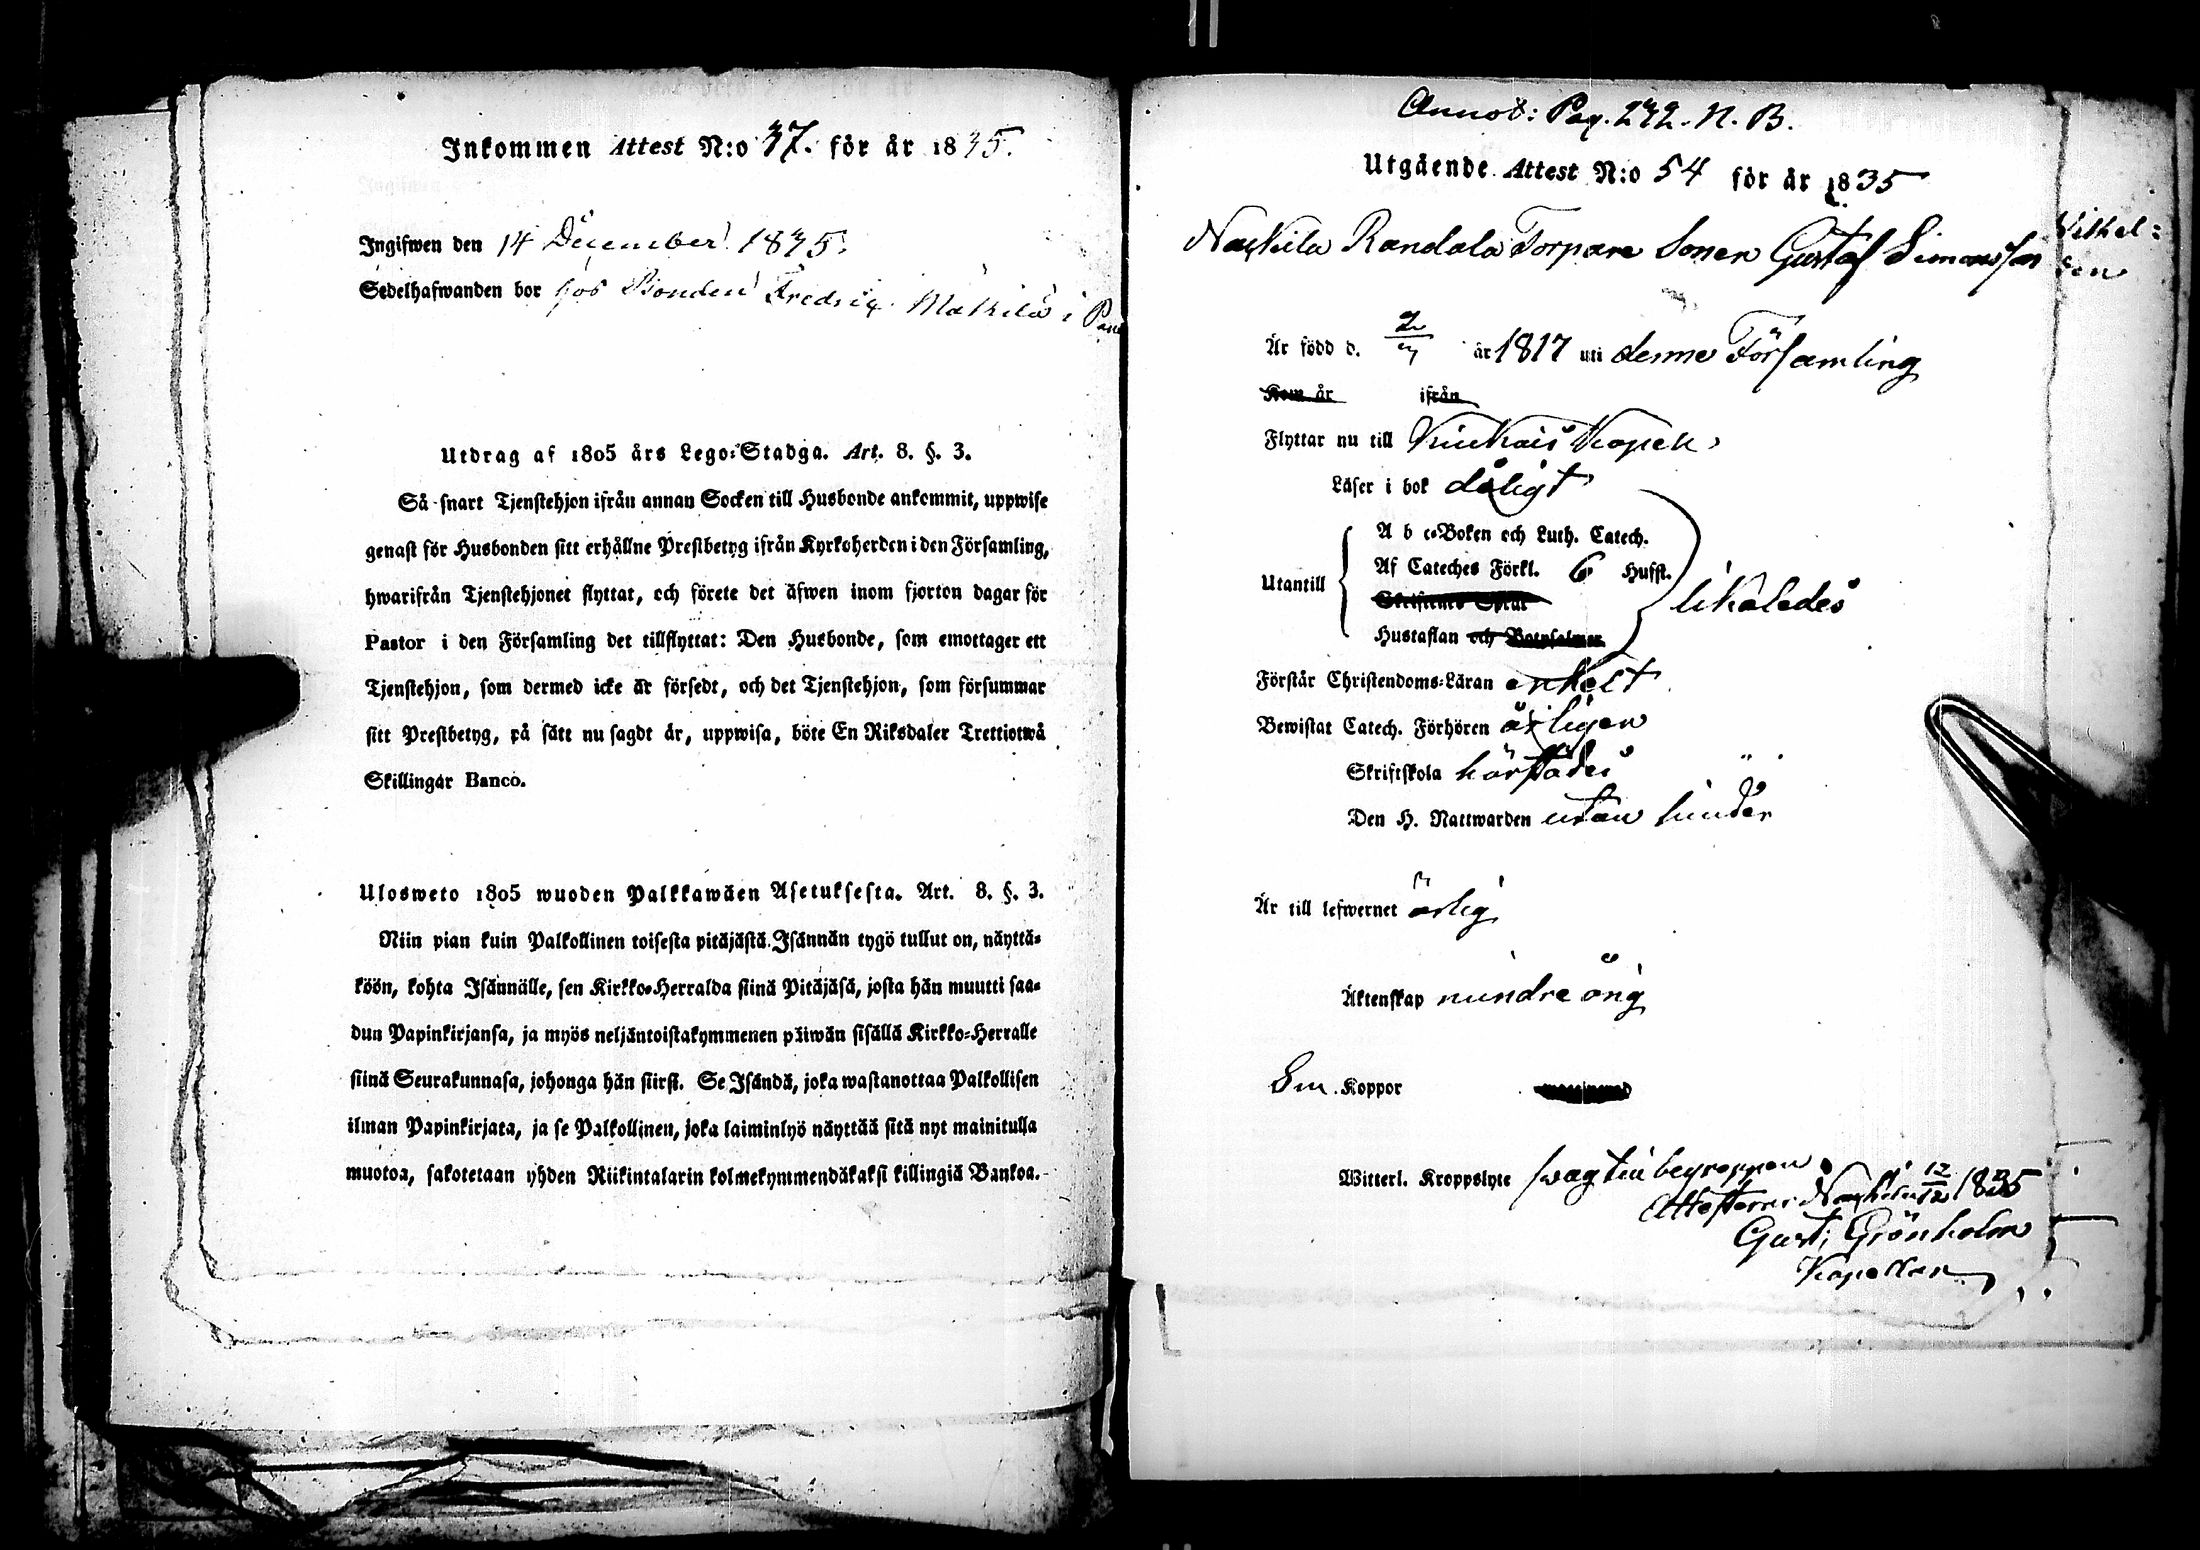 Inkommen Attest N:o 37. för år 1835.
Ingifwen den 14 December 1835.
Sedelhafwanden bor hos Bonden Fredric Mattila i
Utdrag af 1805 års Lego-Stadga. Art. 8. §. 3.
Så snart Tjenstehjon ifrån annan Socken till Husbonde ankommit, uppwise
genast för Husbonden sitt erhållne Prestbetyg ifrån Kyrkoherden i den Församling,
hwarifrån Tjenstehjonet flyttat, och förete det äfwen inom fjorton dagar för
Pastor i den Församling det tillflyttat: Den Husbonde, som emottager ett
Tjenstehjon, som dermed icke är försedt, och det Tjenstehjon, som försummar
sitt Prestbetyg, på sätt nu sagdt är, uppwisa, böte En Riksdaler Trettiotwå
Skillingar Banco.
Ulosweto 1805 wuoden Palkkawäen Asetuksesta. Art. 8. §. 3.
Niin pian kuin Palkollinen toisesta pitäjästä Isännän tygö tullut on, näyttä-
köön, kohta Isännälle, sen Kirkko-Herralda siinä Pitäjäsä, josta hän muutti saa-
dun Papinkirjansa, ja myös neljäntoistakymmenen päiwän sisällä Kirkko-Herralle
siinä Seurakunnasa, johonga hän siirsi. Se Isändä, joka wastanottaa Palkollisen
ilman Papinkirjata, ja se Palkollinen, joka laiminlyö näyttää sitä nyt mainitulla
muotoa, sakotetaan yhden Riikintalarin kolmekymmendäkaksi killingiä Bankoa.
Annot: Pag. 272. N. B.
Utgående Attest N:o 54 för år 1835
Nackila Randala Torpare Sonen Gustaf Simonsson
Är född d. år 1817 uti denna Församling
Kom år ifrån
Flyttar nu till Kiukais Kapell
Läser i bok dåligt
A b c-Boken och Luth. Catech.
Af Cateches Förkl. 6 Hufst.
Utantill likaledes
Hustaflan och Botpsalmer
Förstår Christendoms-Läran enkelt
Bewistat Catech. Förhören årligen
Skriftskola härstädes
Den H. Nattwarden utan hinder
Är till lefwernet ärlig
Äktenskap mindreårig
Koppor
Witterl. Kroppslyte swag til begreppen
Attesterar Nackila 12/12 1835
Gust. Grönholm
Kapellan